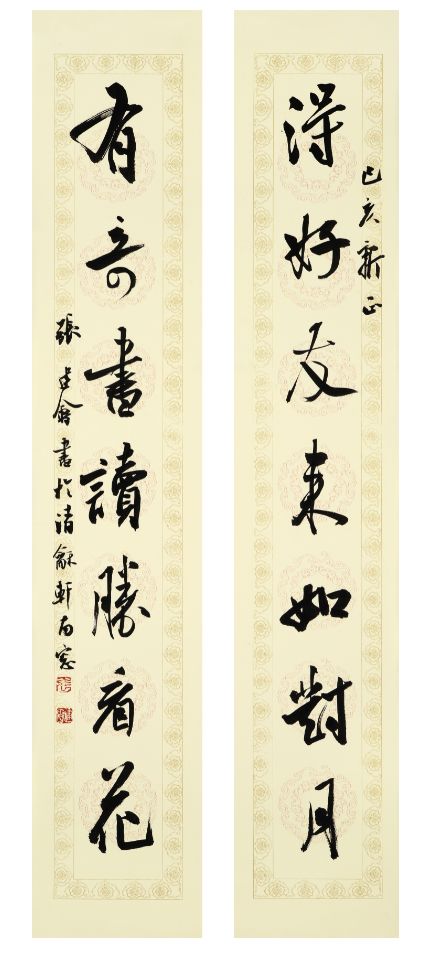 得好友来如對月
己亥新正
有奇書讀勝看花
張建會書於清龢軒南窓